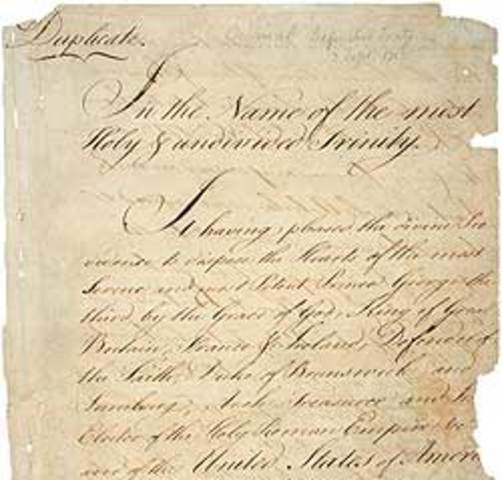 Duplicate.
Original Definitive Treaty
3 Sept. 178
In the Name of the most
Holy & undivided Trinity.
It having pleased the divine Pro
vidence to dispose the Hearts of the most
Serene and most Potent Prince George the
third, by the Grace of God, King of Great
Britain, France & Ireland, Defender of
the Faith, Duke of Brunswick and
Luneburg, Arch Treasurer and
Elector of the Holy Roman Empire &c
and of the United States of Ameri